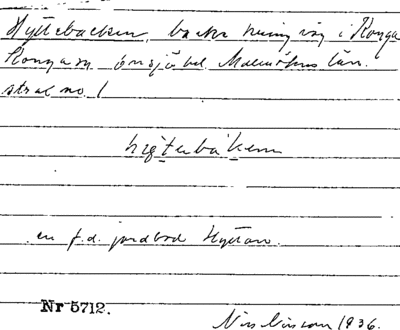 Hyttebacken, backe kring väg i Konga
Konga sn. Onsjö hd. Malmöhus län.
hyt:ebak:en
en f.d. jordbod Hyttan.
Nr 5712.
Nils Nilsson 1936.